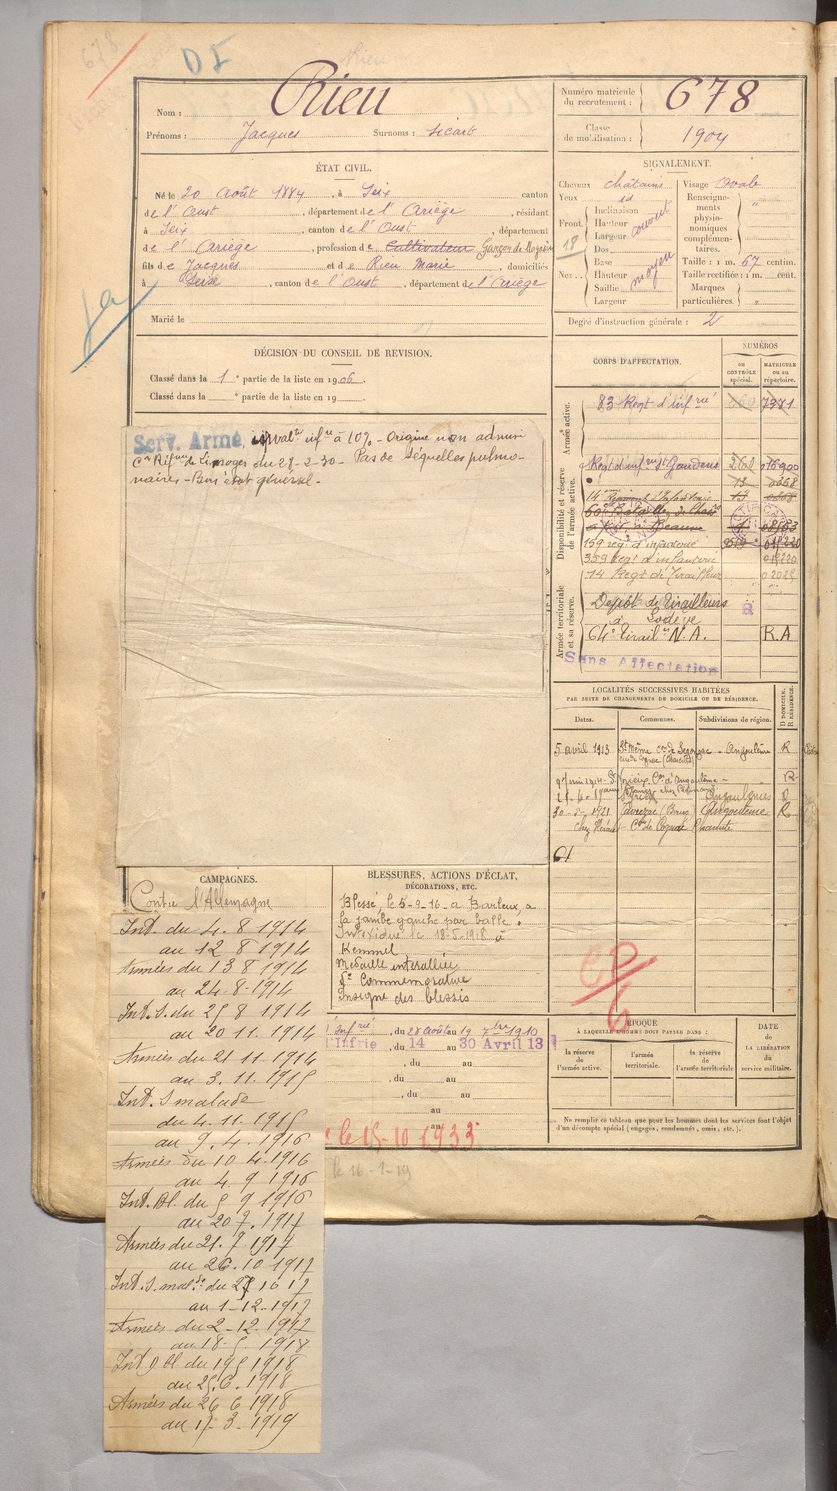 678
DI
Nom : Rieu
Prénoms : Jacques Surnoms : Sicart
ÉTAT CIVIL.
Né le 20 Août 1884, à Seix canton
de l'Oust, département de l'Ariège, résidant
à Seix, canton de l'Oust, département
de l'Ariège, profession de Cultivateur Garçon de Magasin
fils de Jacques et de Rieu Marie, domiciliés
à Seix, canton de l'Oust, département de l'Ariège
Marié le
DÉCISION DU CONSEIL DE REVISION.
Classé dans la 1e partie de la liste en 1906.
Classé dans la e partie de la liste en 19
Serv. Armé, inval té infre à 10% - Origine non admise
Con Réfme de Limoges du 28-2-30 - Pas de séquelles pulmo-
naires - Bon état général.
CAMPAGNES.
Contre l'Allemagne
Int. du 4. 8 1914
au 12 8 1914
Armées du 13 8 1914
au 24-8-1914
Int. S. du 25 8 1914
au 20 11. 1914
Armées du 21 11 1914
au 3. 11. 1915
Int. S malade
du 4. 11. 1915
au 9. 4. 1916
Armées du 10 4.1916
au 4. 9 1916
Int. Bl. du 5 9 1916
au 20 7. 1917
Armées du 21. 7 1917
au 26. 10 1917
Int. S. mal.de du 27 10 17
au 1-12-1917
Armées du 2-12. 1917
au 18. 5. 1918
Int. Bl du 19 5 1918
au 25. 6. 1918
Armées du 26 6 1918
au 17. 3. 1919
BLESSURES, ACTIONS D'ÉCLAT,
DÉCORATIONS, ETC.
Blessé, le 5-9-16 à Barleux, à
la jambe gauche par balle.
Intoxiqué le 18-5-1918 à
Kemmel
Médaille interalliée
do Commémorative
Insigne des blessés
Infrie, du 28 août au 19 7bre 1910
d'Infrie, du 14 au 30 Avril 13
, du au
, du au
, du au
au
au
le 15-10 1933
le 16-1-19
Numéro matricule du recrutement : 678
Classe de mobilisation : 1904
SIGNALEMENT.
Cheveux châtains Visage Ovale
Yeux id
Front. Inclinaison Hauteur Largeur couvert
18
Nez Dos Base Hauteur Saillie Largeur moyen
Renseignements physionomiques complémentaires. "
Taille : 1 m. 67 centim.
Taille rectifiée : 1 m. cent.
Marques particulières. "
Degré d'instruction générale : 2
CORPS D'AFFECTATION.
NUMÉROS
au CONTRÔLE spécial.
MATRICULE ou au répertoire.
Armée active.
83 Regt d'infrie 7381
Disponibilité et réserve de l'armée active.
Regt d'infrie St Gaudens 260 016900
14ème Régiment d'Infanterie
60e Bataillon de Chass
à Pied à Beaune
159 reg. d'infanterie
359 Regt d'Infanterie 019220
14 Regt de Tirailleur 02025
Armée territoriale et sa réserve.
Dépôt de Tirailleurs
à Lodève R
64e Tirail rs N.A. R.A
Sans Affectation
LOCALITÉS SUCCESSIVES HABITÉES
PAR SUITE DE CHANGEMENTS DE DOMICILE OU DE RÉSIDENCE.
Dates. Communes. Subdivisions de région. D DOMICILE. R RÉSIDENCE.
5 avril 1913 St Même con de Segonzac - Angoulême R
con de Cognac (Charente)
R
Angoulême D
30-5-1921 R
Con de Cognac Charente
ÉPOQUE
À LAQUELLE L'HOMME DOIT PASSER DANS :
la réserve de l'armée active.
l'armée territoriale.
la réserve de l'armée territoriale.
DATE DE LA LIBÉRATION du service militaire.
Ne remplir ce tableau que pour les hommes dont les services font l'objet
d'un décompte spécial (engagés, condamnés, omis, etc.).